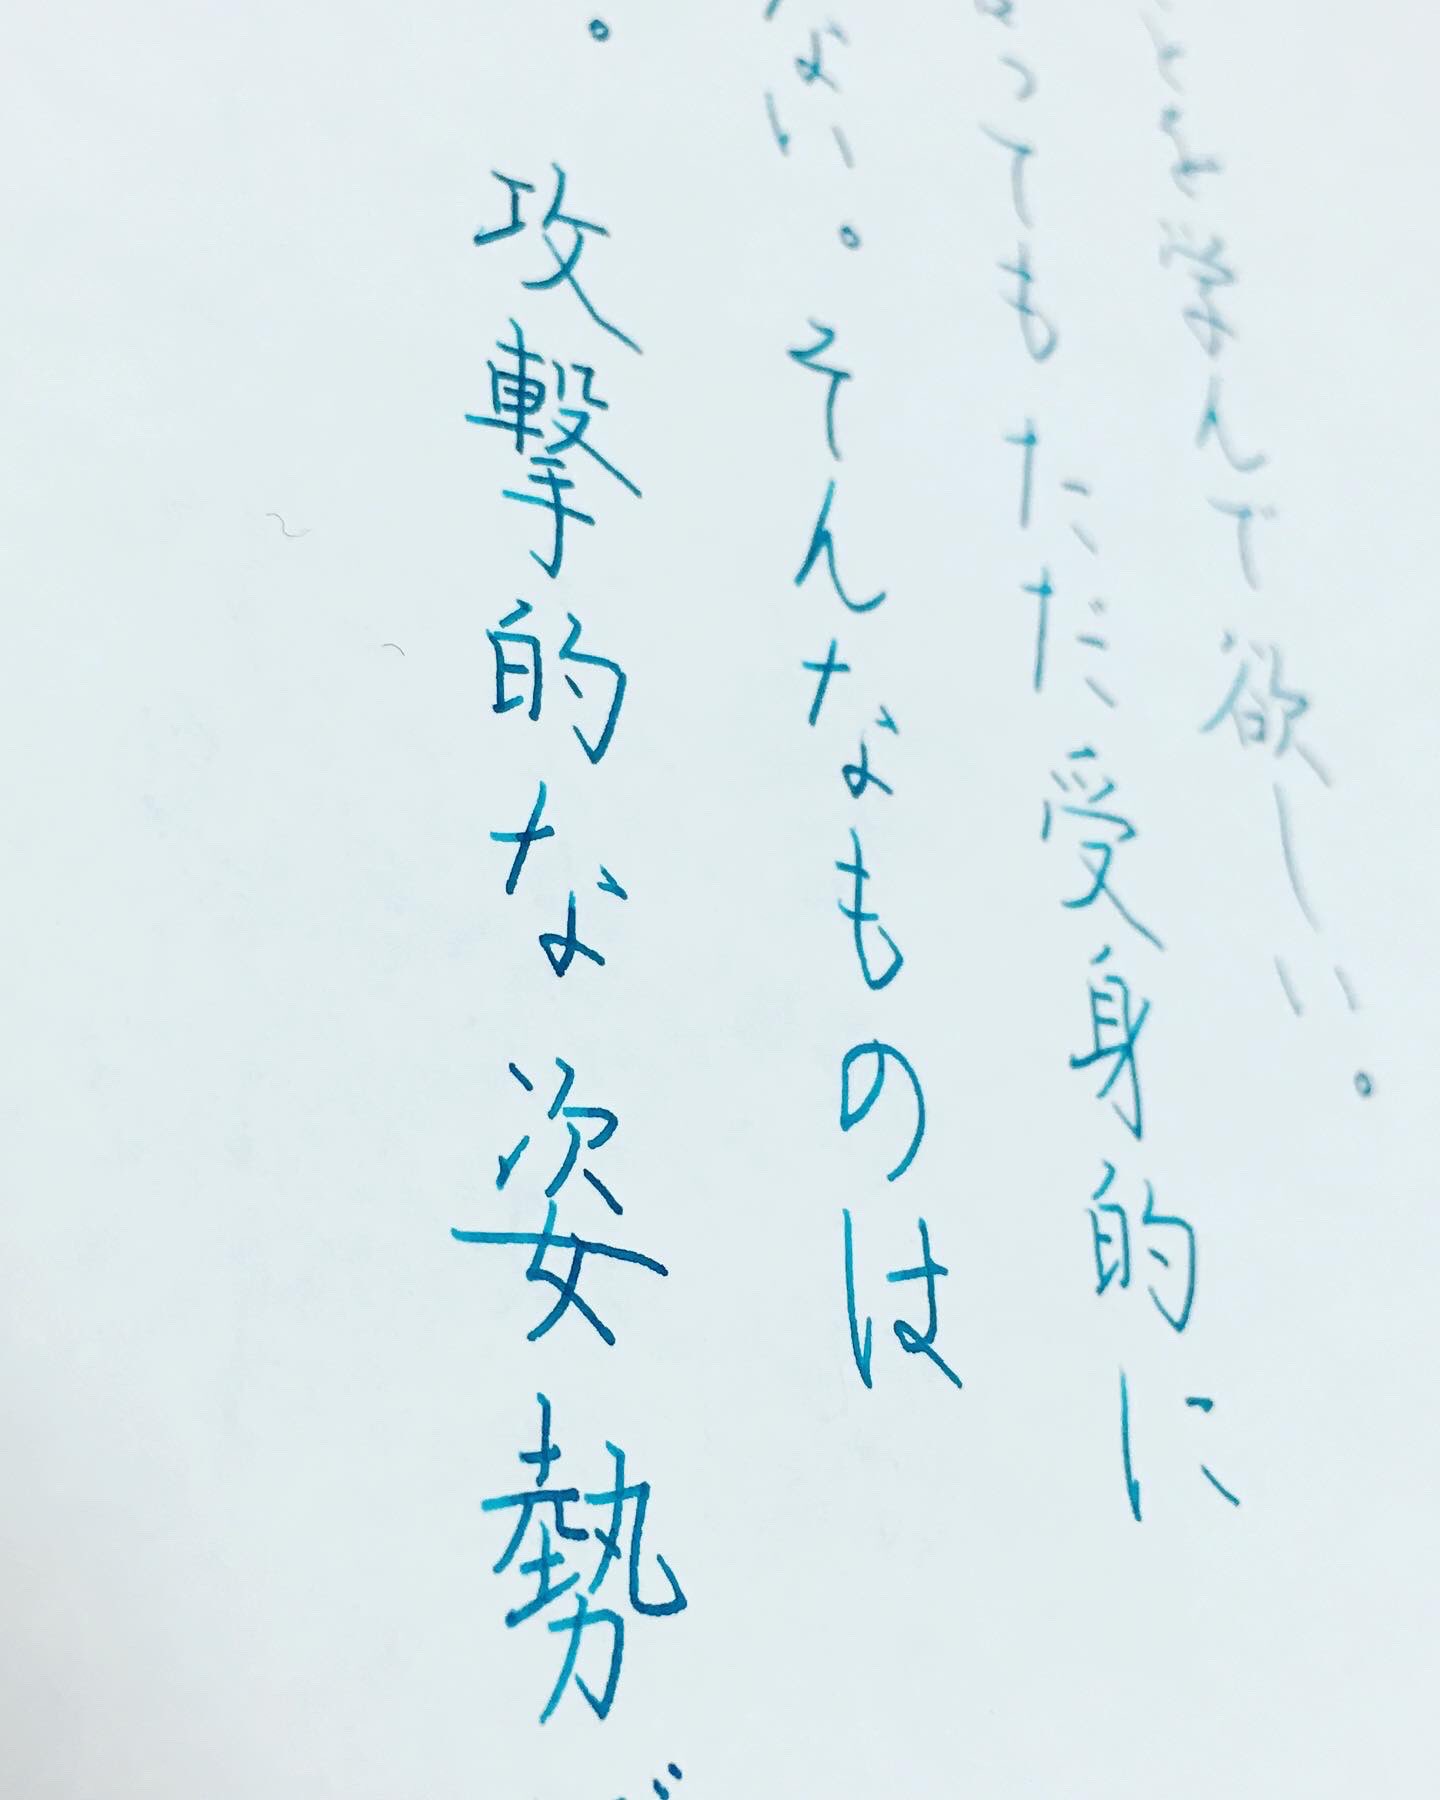 とを学んで欲しい。
なってもただ受身的に
ない。そんなものは
。攻撃的な姿勢